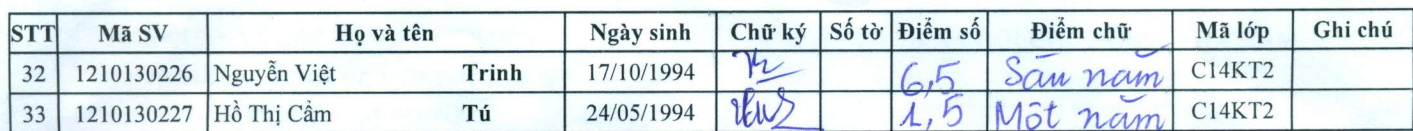 STT Mã SV Họ và tên Ngày sinh Chữ ký Số tờ Điểm số Điểm chữ Mã lớp Ghi chú
32 1210130226 Nguyễn Việt Trinh 17/10/1994 6,5 Sáu năm C14KT2
33 1210130227 Hồ Thị Cẩm Tú 24/05/1994 1,5 Một năm C14KT2